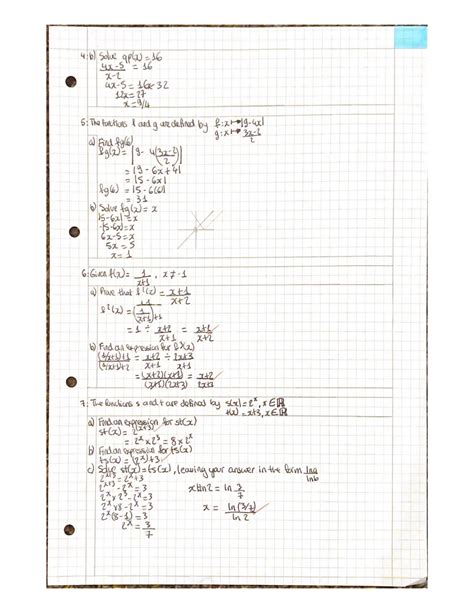 4:b) Solve qp(x)=16
4x-5/x-2 = 16
4x-5=16x-32
12x=27
x=9/4
5: The functions f and g are defined by f:x↦|9-4x|
g:x↦3x-2/2
a) Find fg(6)
fg(x)= |9-4(3x-2/2)|
= |9-6x+4|
= |5-6x|
fg(6) = |5-6(6)|
= 31
b) Solve fg(x)=x
|5-6x|=x
-(5-6x)=x
6x-5=x
5x=5
x=1
6: Given f(x)= 1/x+1, x≠-1
a) Prove that f²(x)= x+1/x+2
f²(x)= 1/(1/x+1)+1
= 1 ÷ x+2/x+1 = x+1/x+2
b) Find an expression for f³(x)
(1/x+1)+1/(1/x+1)+2 = x+2/x+1 ÷ 2x+3/x+1
= (x+2)(x+1)/(x+1)(2x+3) = x+2/2x+3
7: The functions s and t are defined by s(x)=2ˣ, x∈ℝ
t(x)=x+3, x∈ℝ
a) Find an expression for st(x)
st(x)= 2^(x+3)
= 2ˣ×2³=8×2ˣ
b) Find an expression for ts(x)
ts(x)= (2ˣ)+3
c) Solve st(x)=ts(x), leaving your answer in the form ln a/ln b
2^x+3=2ˣ+3
2^x+3-2ˣ=3
2ˣ×2³-2ˣ=3
2ˣ×8-2ˣ=3
2ˣ(8-1)=3
2ˣ=3/7
x ln2 = ln 3/7
x = ln(3/7)/ln 2